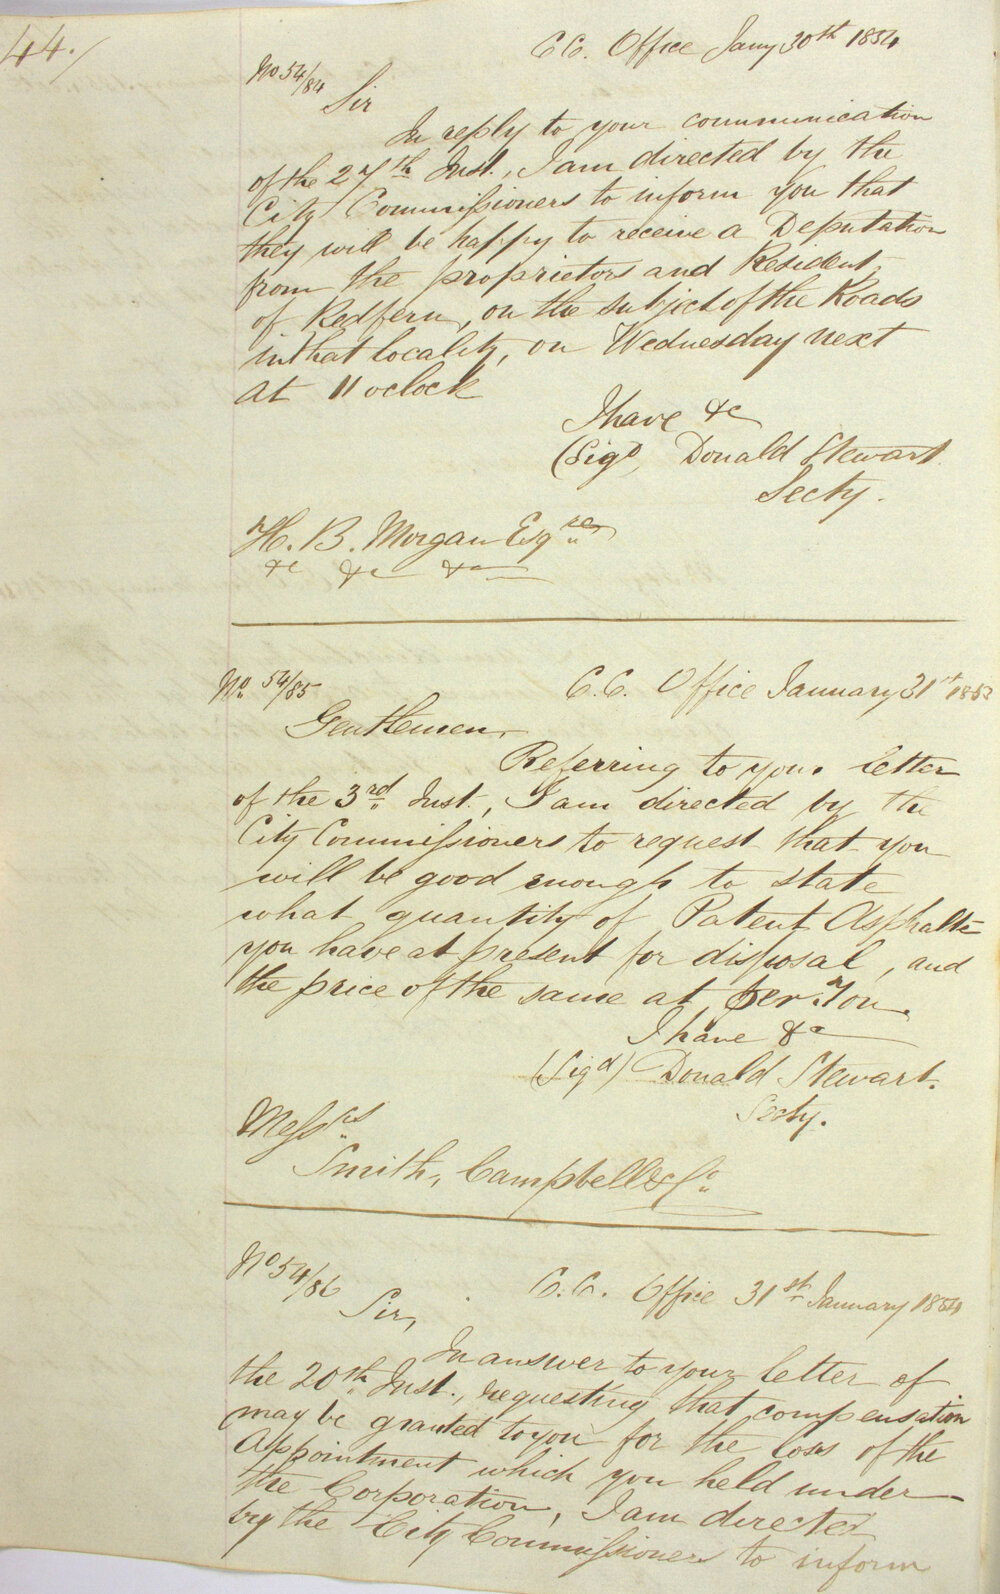 44./
C.C. Office Jany 30th 1854
No 54/84
Sir
In reply to your communication
of the 27th Inst., I am directed by the
City Commissioners to inform you that
they will be happy to receive a Deputation
from the proprietors and Resident
of Redfern, on the subject of the Roads
in that locality, on Wednesday next
at 11 oclock
I have &c
(Sigd, Donald Stewart.
Secty.
H. B. Morgan Esqre
&c &c &c
No. 54/85
C.C. Office January 31st 185
Gentlemen,
Referring to your letter
of the 3rd Inst., I am directed by the
City Commissioners to request that you
will be good enough to state
what quantity of Patent Asphalte
you have at present for disposal, and
the price of the same at per Ton.
I have &c
(Sigd) Donald Stewart.
Secty.
Messrs
Smith, Campbell & Co
No 54/86
C.C. Office 31st January 1854
Sir,
In answer to your letter of
the 20th Inst., requesting that compensation
may be granted to you for the loss of the
Appointment which you held under
the Corporation, I am directed
by the City Commissioners to inform